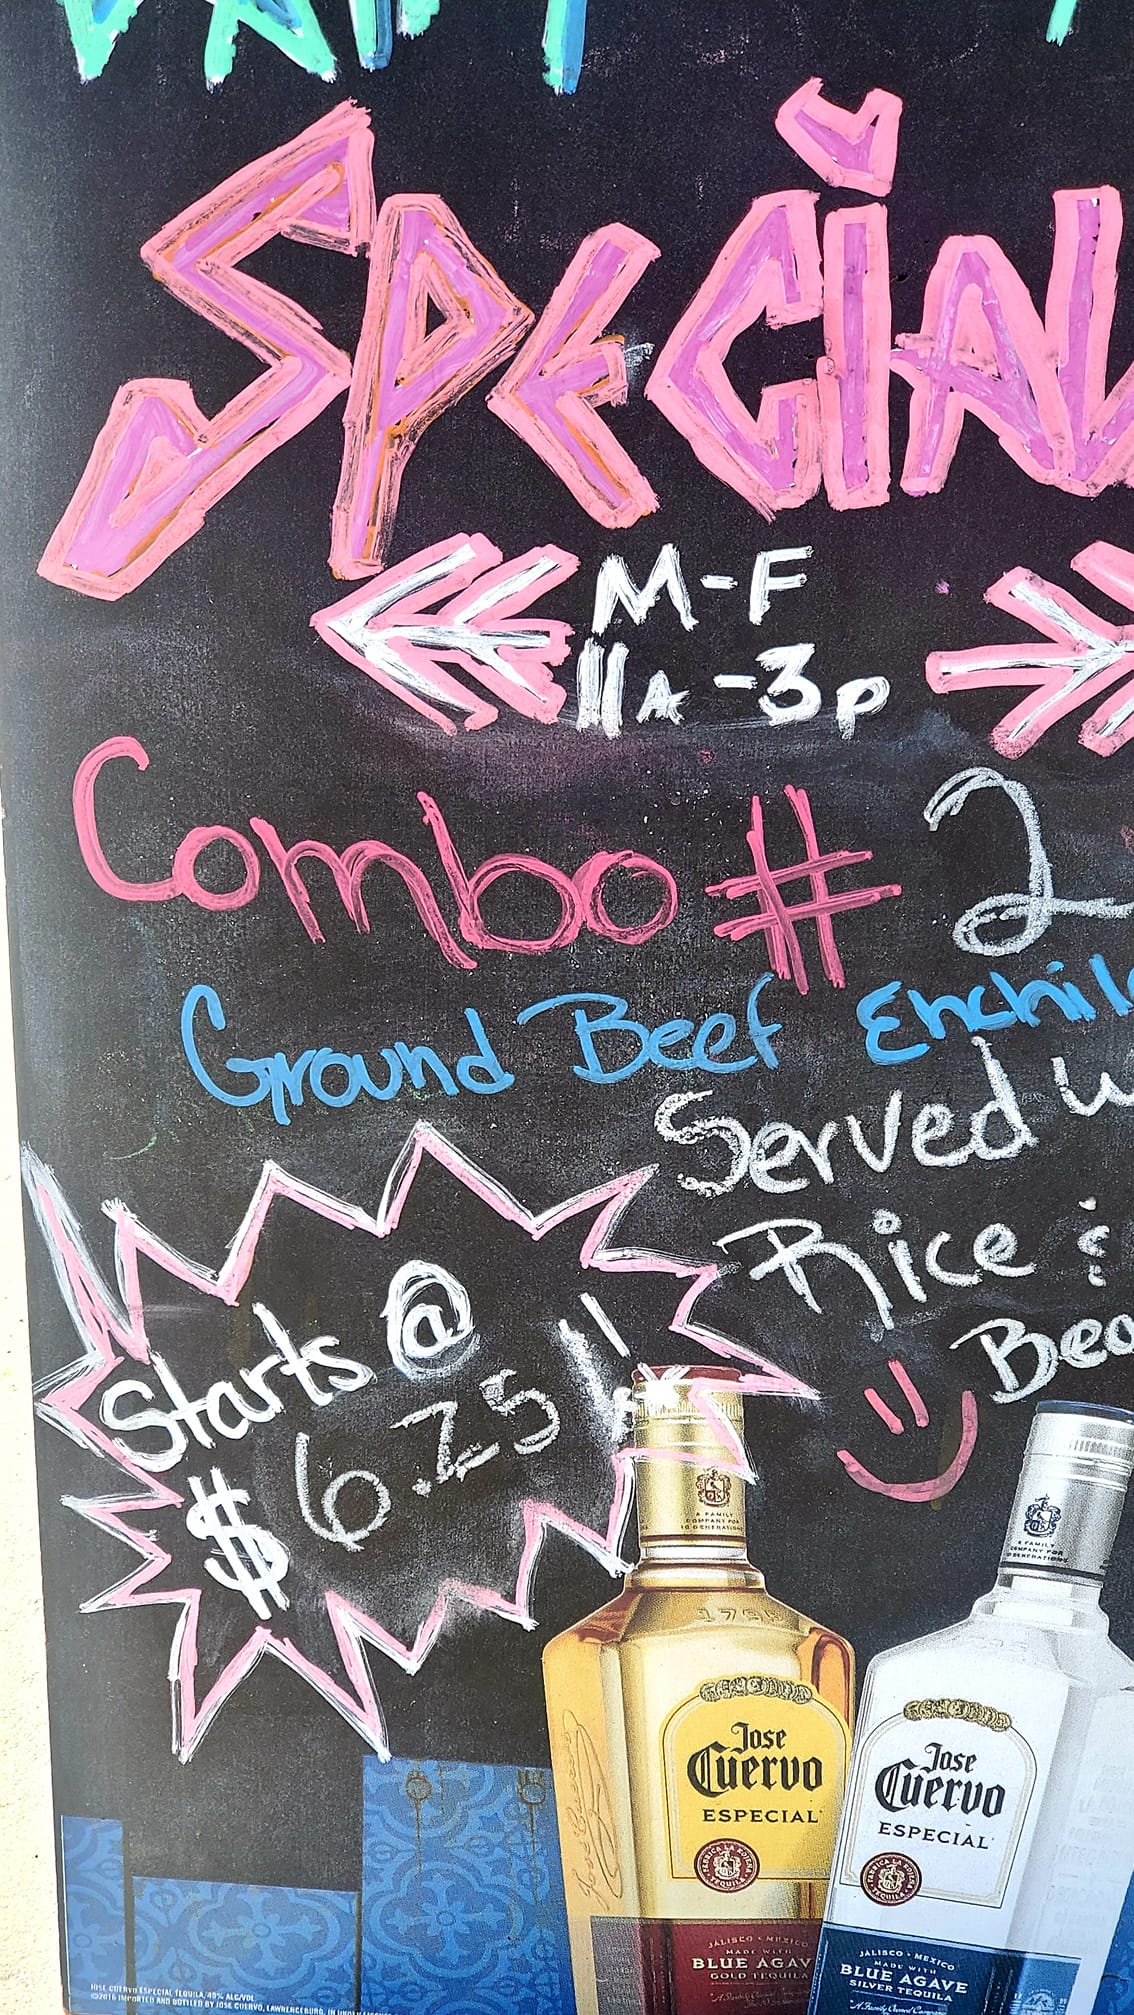 Special
M-F
11A-3p
Combo # 2
Ground Beef Enchil
Served w
Rice &
Bea
Starts @
$ 6.25!!
A FAMILY
COMPANY FOR
10 GENERATIONS
A FAMILY
COMPANY FOR
10 GENERATIONS
Jose
Cuervo
ESPECIAL
Jose
Cuervo
ESPECIAL
JALISCO • MEXICO
MADE WITH
BLUE AGAV
GOLD TEQUILA
JALISCO • MEXICO
MADE WITH
BLUE AGAVE
SILVER TEQUILA
JOSE CUERVO ESPECIAL TEQUILA, 40% ALC/VOL
©2016 IMPORTED AND BOTTLED BY JOSE CUERVO, LAWRENCEBURG, IN